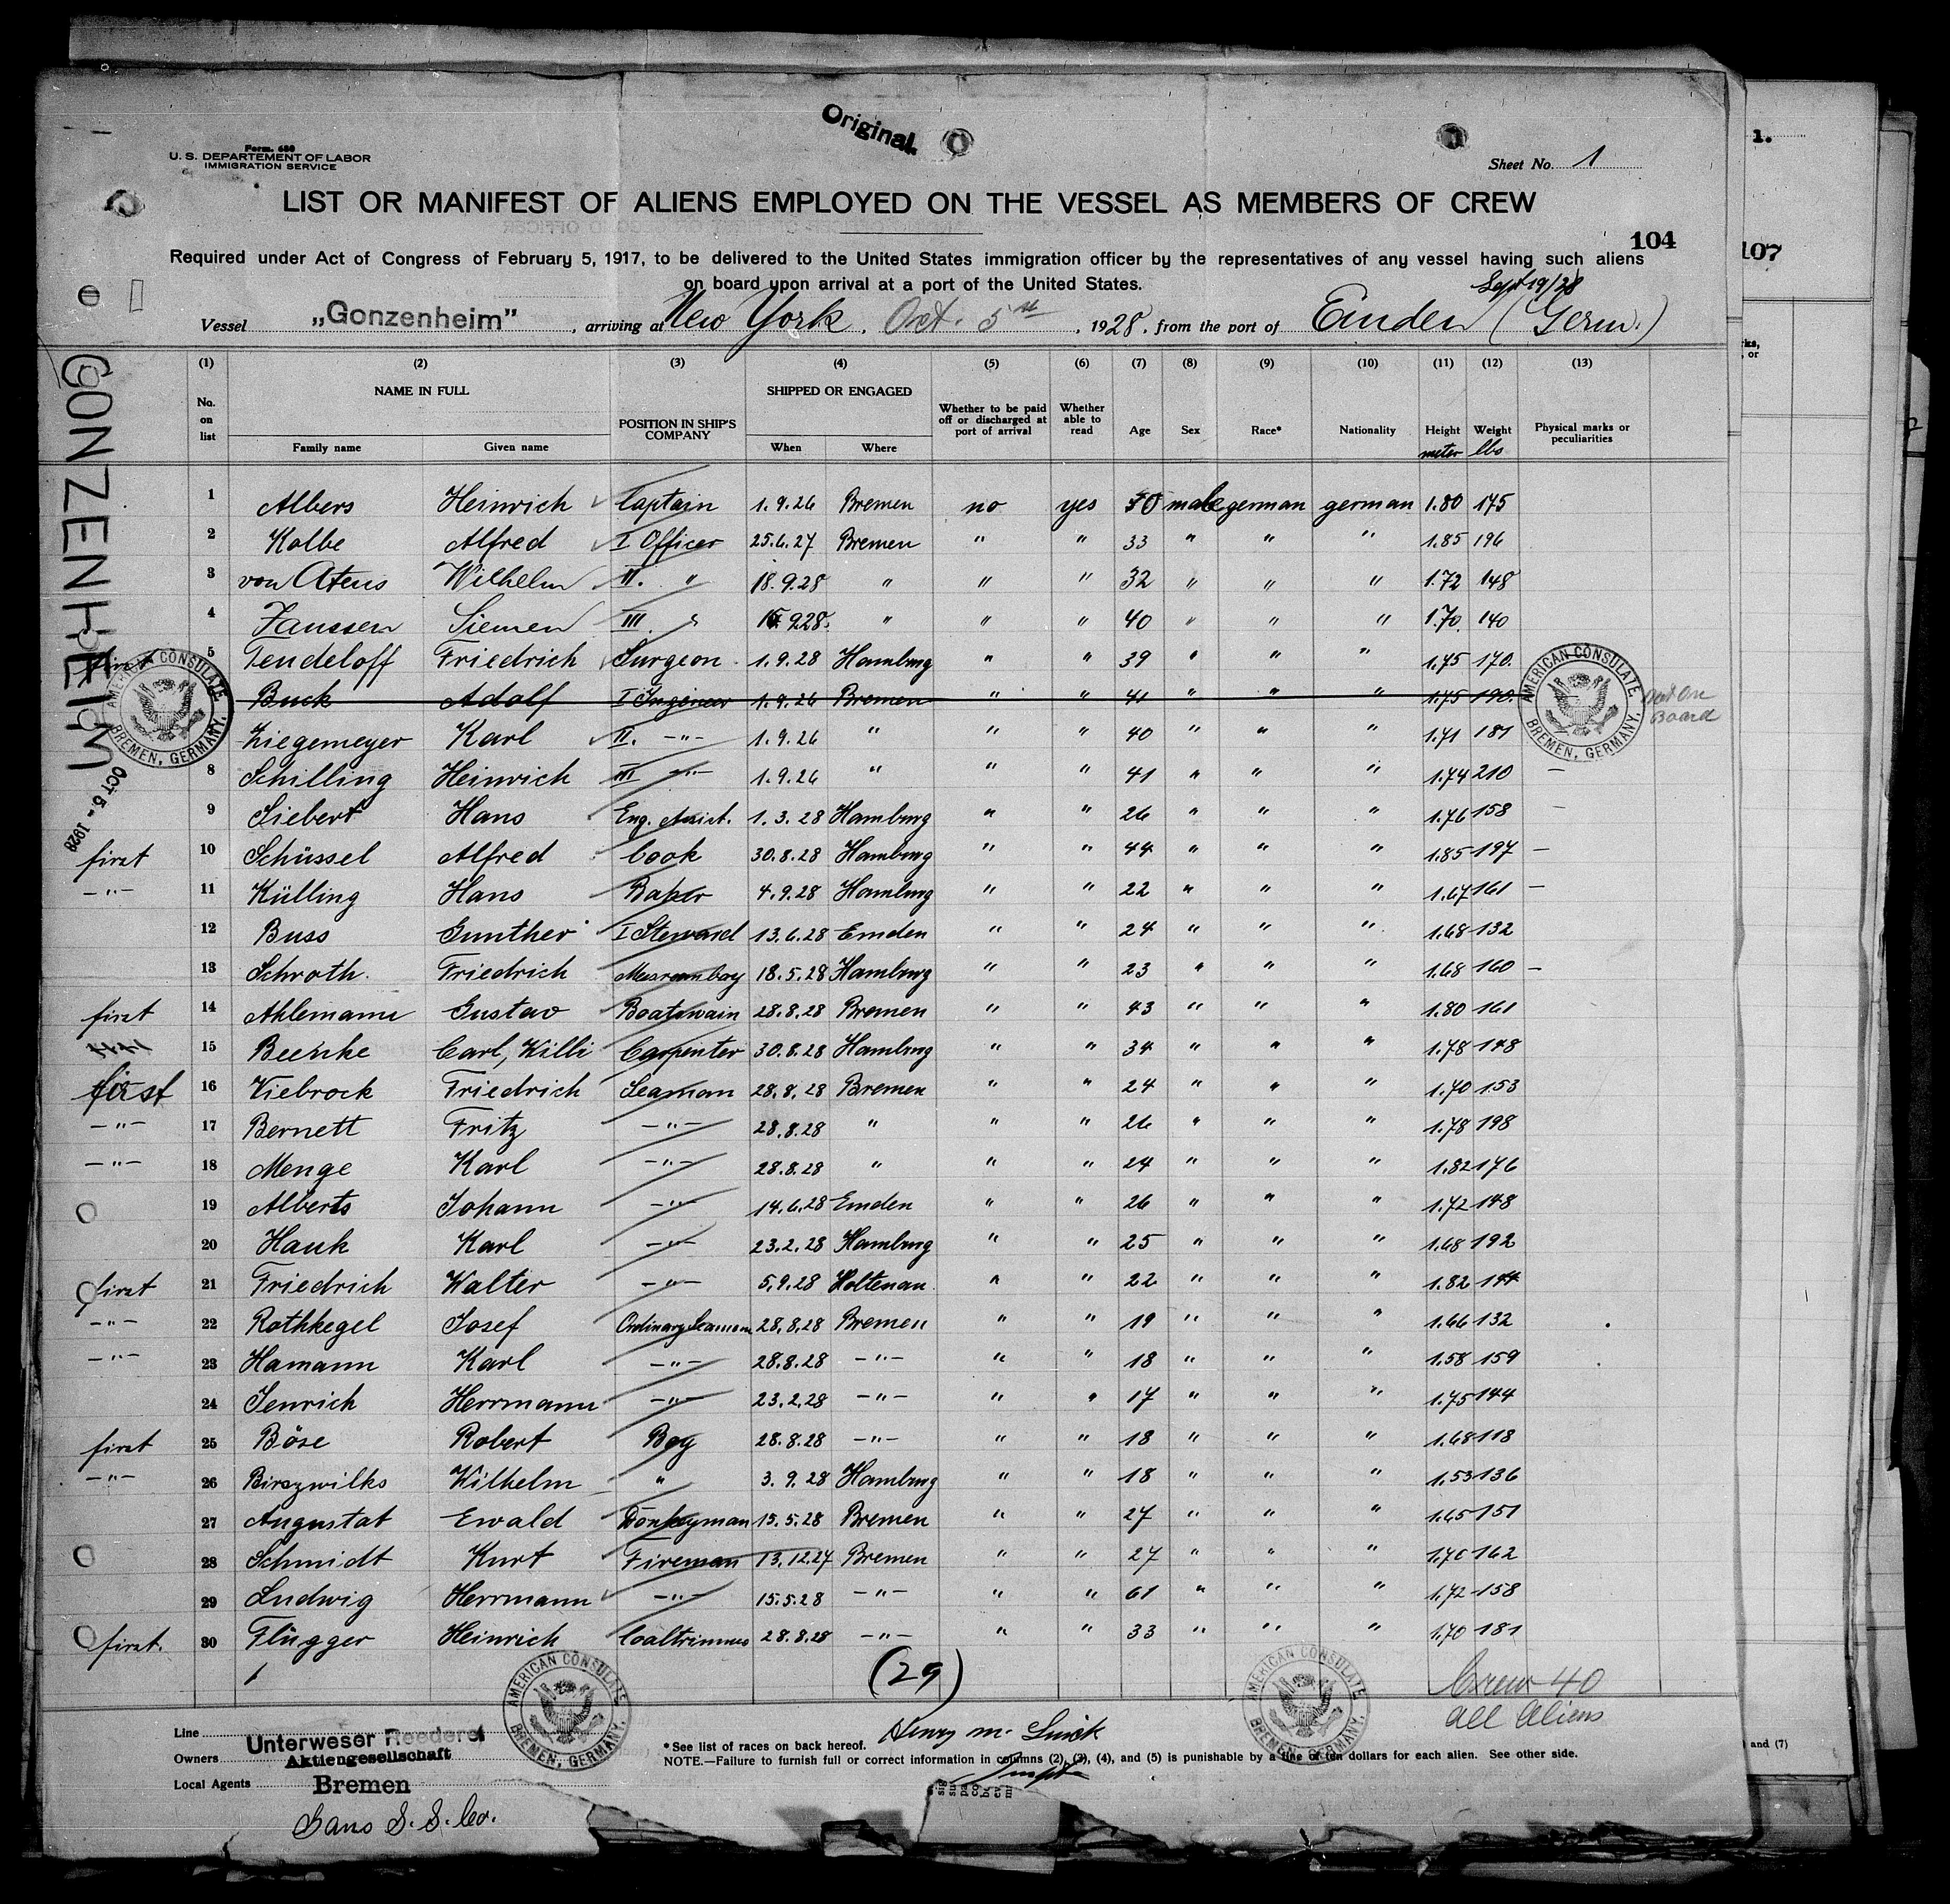 Original.
Form. 680
U. S. DEPARTEMENT OF LABOR
IMMIGRATION SERVICE
Sheet No. 1
LIST OR MANIFEST OF ALIENS EMPLOYED ON THE VESSEL AS MEMBERS OF CREW
104
107
1.
Required under Act of Congress of February 5, 1917, to be delivered to the United States immigration officer by the representatives of any vessel having such aliens
on board upon arrival at a port of the United States.
Sept 19/28
Vessel „Gonzenheim” , arriving at New York, Oct. 5th , 1928, from the port of Emden (Germ.)
GONZENHEIM
OCT 5 - 1928
(1) (2) (3) (4) (5) (6) (7) (8) (9) (10) (11) (12) (13)
No. on list NAME IN FULL Family name Given name POSITION IN SHIP'S COMPANY SHIPPED OR ENGAGED When Where Whether to be paid off or discharged at port of arrival Whether able to read Age Sex Race* Nationality Height meter Weight lbs Physical marks or peculiarities
1 Albers Heinrich Captain 1.9.26 Bremen no yes 50 male german german 1.80 175
2 Kolbe Alfred I Officer 25.6.27 Bremen " " 33 " " " 1.85 196
3 von Atens Wilhelm II. " 18.9.28 " " " 32 " " " 1.72 148
4 Janssen Siemen III " 928. " " " 40 " " " 1.70 140
first 5 Tendeloff Friedrich Surgeon 1.9.28 Hamburg " " 39 " " " 1.75 170
Buck Adolf I Ingenieur 1.9.26 Bremen " " 41 " " " 1.75 190. Not on Board
Ziegemeyer Karl II. -"- 1.9.26 " " " 40 " " " 1.71 181
8 Schilling Heinrich III -"- 1.9.26 " " " 41 " " " 1.74 210 —
9 Siebert Hans Eng. Assist. 1.3.28 Hamburg " " 26 " " " 1.76 158 —
first 10 Schüssel Alfred Cook 30.8.28 Hamburg " " 44 " " " 1.85 197 —
-"- 11 Külling Hans Baker 4.9.28 Hamburg " " 22 " " " 1.67 161 —
12 Buss Gunther I Steward 13.6.28 Emden " " 24 " " " 1.68 132
13 Schroth. Friedrich Messroomboy 18.5.28 Hamburg " " 23 " " " 1.68 160 —
first 14 Ahlemann Gustav Boatswain 28.8.28 Bremen " " 43 " " " 1.80 161
15 Beenke Carl, Willi Carpenter 30.8.28 Hamburg " " 34 " " " 1.78 148
first 16 Viebrock Friedrich Seaman 28.8.28 Bremen " " 24 " " " 1.70 153
-"- 17 Bernett Fritz -"- 28.8.28 " " " 26 " " " 1.78 198
-"- 18 Menge Karl -"- 28.8.28 " " " 24 " " " 1.82 176
19 Alberts Johann -"- 14.6.28 Emden " " 26 " " " 1.72 148
20 Hauk Karl -"- 23.2.28 Hamburg " " 25 " " " 1.68 192
first 21 Friedrich Walter -"- 5.9.28 Holtenau " " 22 " " " 1.82 144
-"- 22 Rothkegel Josef Ordinary Seaman 28.8.28 Bremen " " 19 " " " 1.66 132
-"- 23 Hamann Karl -"- 28.8.28 -"- " " 18 " " " 1.58 159
24 Jenrich Herrmann -"- 23.2.28 -"- " " 17 " " " 1.75 144
first 25 Böse Robert Boy 28.8.28 -"- " " 18 " " " 1.68 118
-"- 26 Birszwilks Wilhelm " 3.9.28 Hamburg " " 18 " " " 1.53 136
27 Augustat Ewald Donkeyman 15.5.28 Bremen " " 27 " " " 1.65 151
28 Schmidt Kurt Fireman 13.12.27 Bremen " " 27 " " " 1.70 162
29 Ludwig Herrmann -"- 15.5.28 -"- " " 61 " " " 1.72 158
first. 30 Flügger Heinrich Coaltrimmer 28.8.28 -"- " " 33 " " " 1.70 181
(29)
Crew 40
all Aliens
AMERICAN CONSULATE, BREMEN, GERMANY.
AMERICAN CONSULATE, BREMEN, GERMANY.
AMERICAN CONSULATE, BREMEN, GERMANY.
AMERICAN CONSULATE, BREMEN, GERMANY.
Line Unterweser Reederei
Owners Aktiengesellschaft
Local Agents Bremen
Gans S. S. Co.
*See list of races on back hereof.
NOTE.—Failure to furnish full or correct information in columns (2), (3), (4), and (5) is punishable by a fine of ten dollars for each alien. See other side.
and (7)